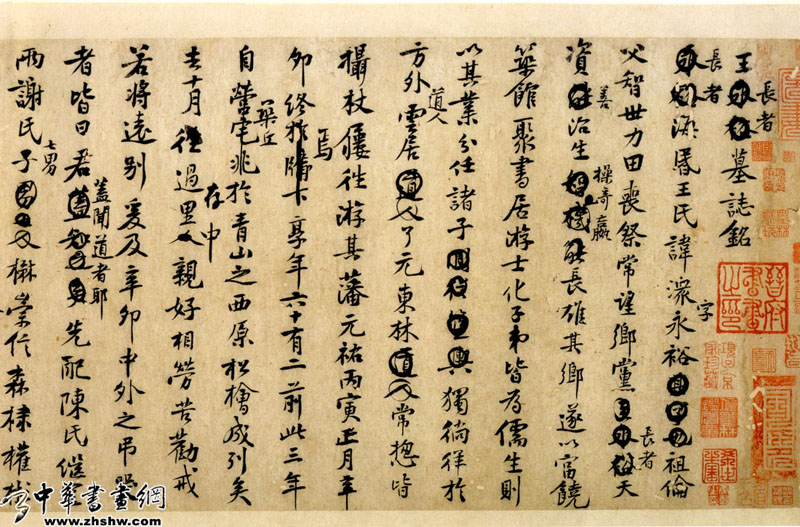 王長者墓誌銘
長者海昏王氏諱潀字永裕祖倫
父智世力田喪祭常望鄉黨長者天
資善治生操奇贏長雄其鄉遂以富饒
築館聚書居游士化子弟皆為儒生則
以其業分任諸子獨徜徉於
方外雲居道人了元東林常揔皆
攝杖屨往游其藩元祐丙寅正月辛
卯終於牖下享年六十有二前此三年
自營宅兆於築丘焉青山之西原松檜成列矣
去十月往過里存中親好相勞苦勸戒
若將遠別爰及辛卯中外之弔哭
者皆曰君蓋聞道者耶先配陳氏繼室
兩謝氏子七男楙崇仁森棣權
晉府書畫之印
中華書畫網
www.zhshw.com